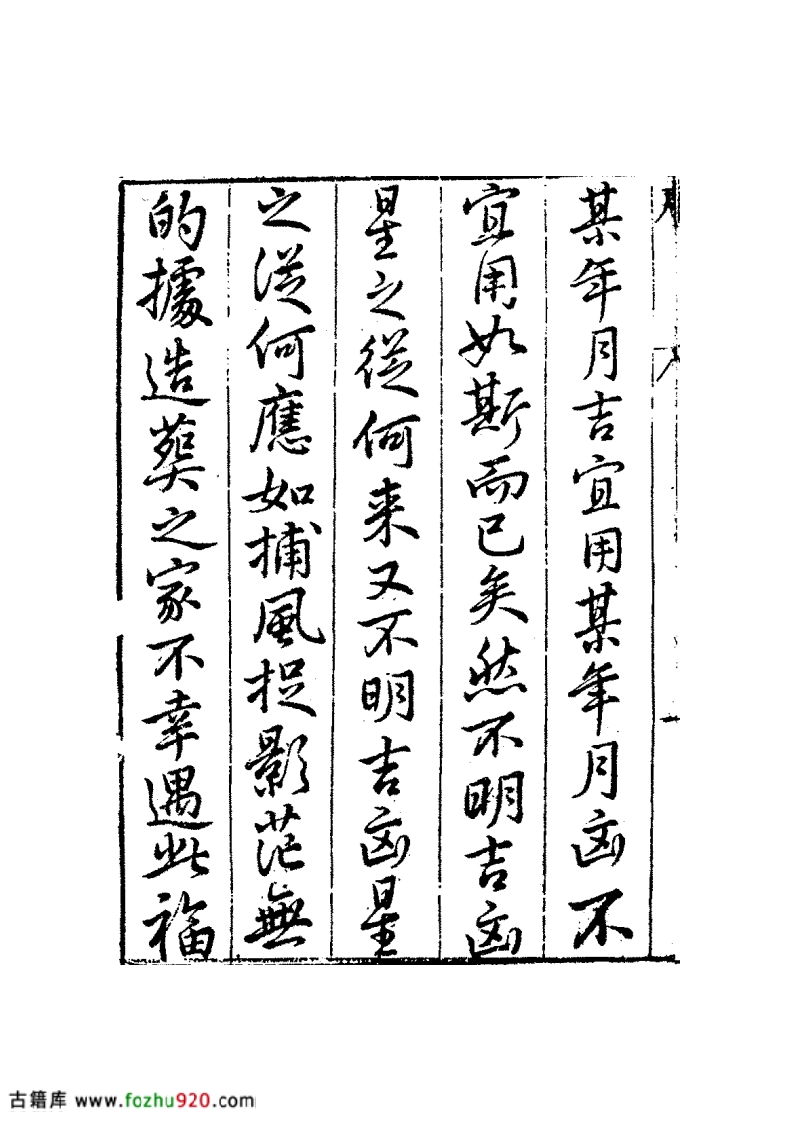 某年月吉宜用某年月凶不
宜用如斯而已矣然不明吉凶
星之從何来又不明吉凶星
之從何應如捕風捉影茫無
的據造葬之家不幸遇此福
古籍库 www.fozhu920.com